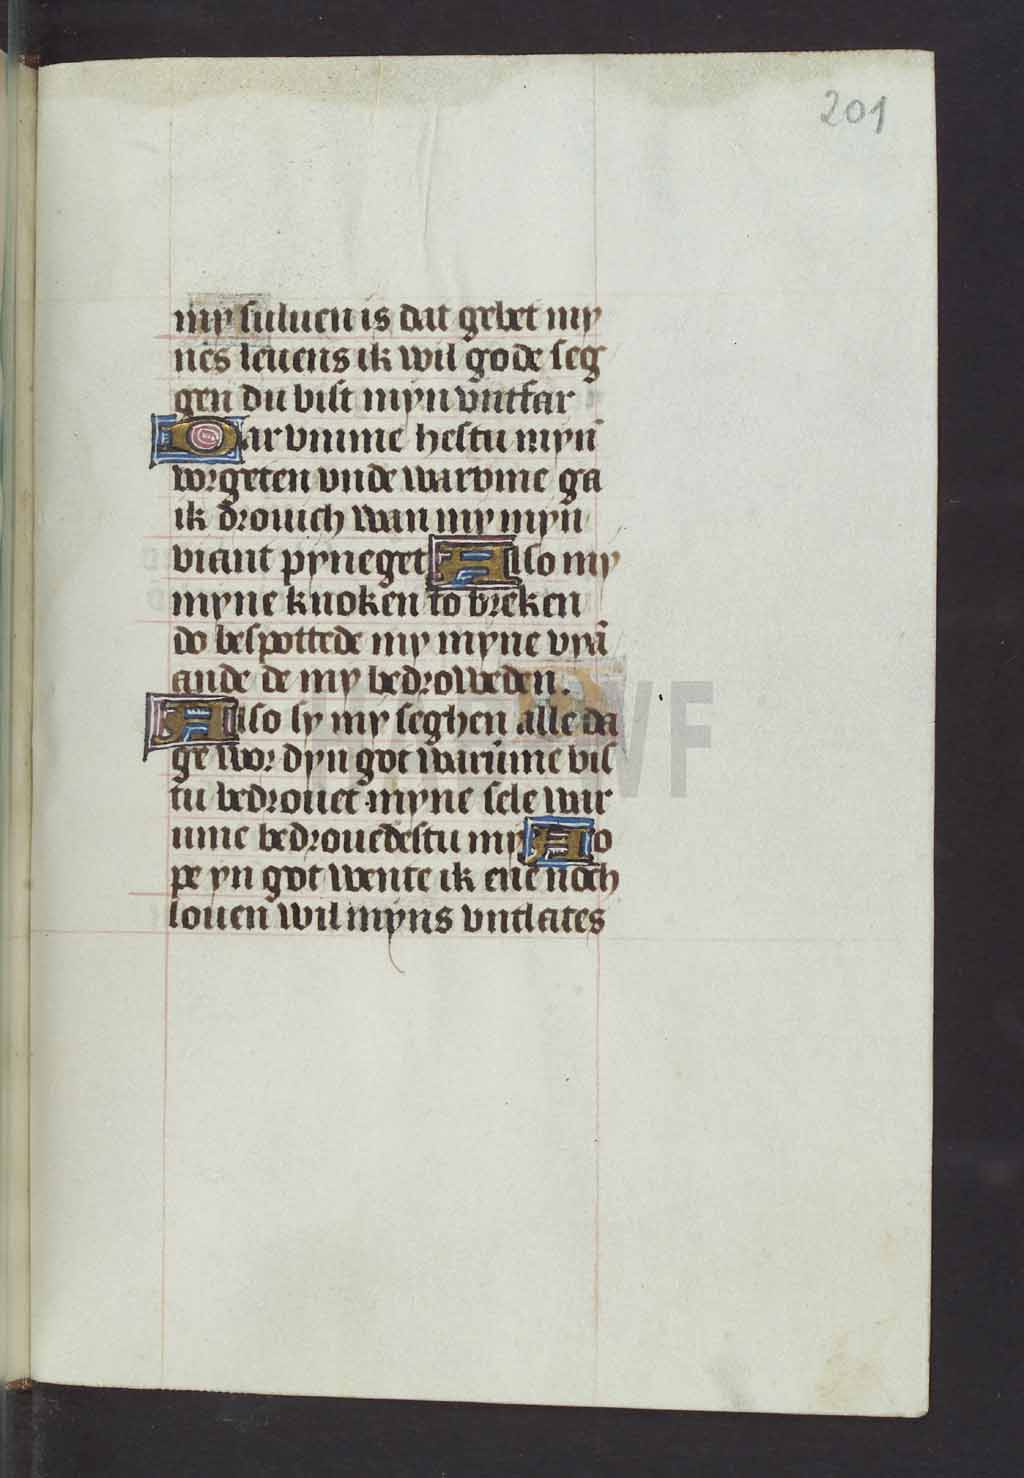 201
my suluen is dat gebet my
nes leuens ik wil gode seg
gen du bist myn vntfar
Warvmme hestu myn̄
vorgeten vnde warvme ga
ik drouich wan my myn
viant pyneget Also my
myne knoken to breken
do bespottede my myne vyā
ande de my bedroweden.
Also sy my seghen alle da
ge wor dyn got warūme bis
tu bedrouet myne sele war
ume bedrouedestu my Ho
pe yn got wente ik ene noch
louen wil myns vntlates